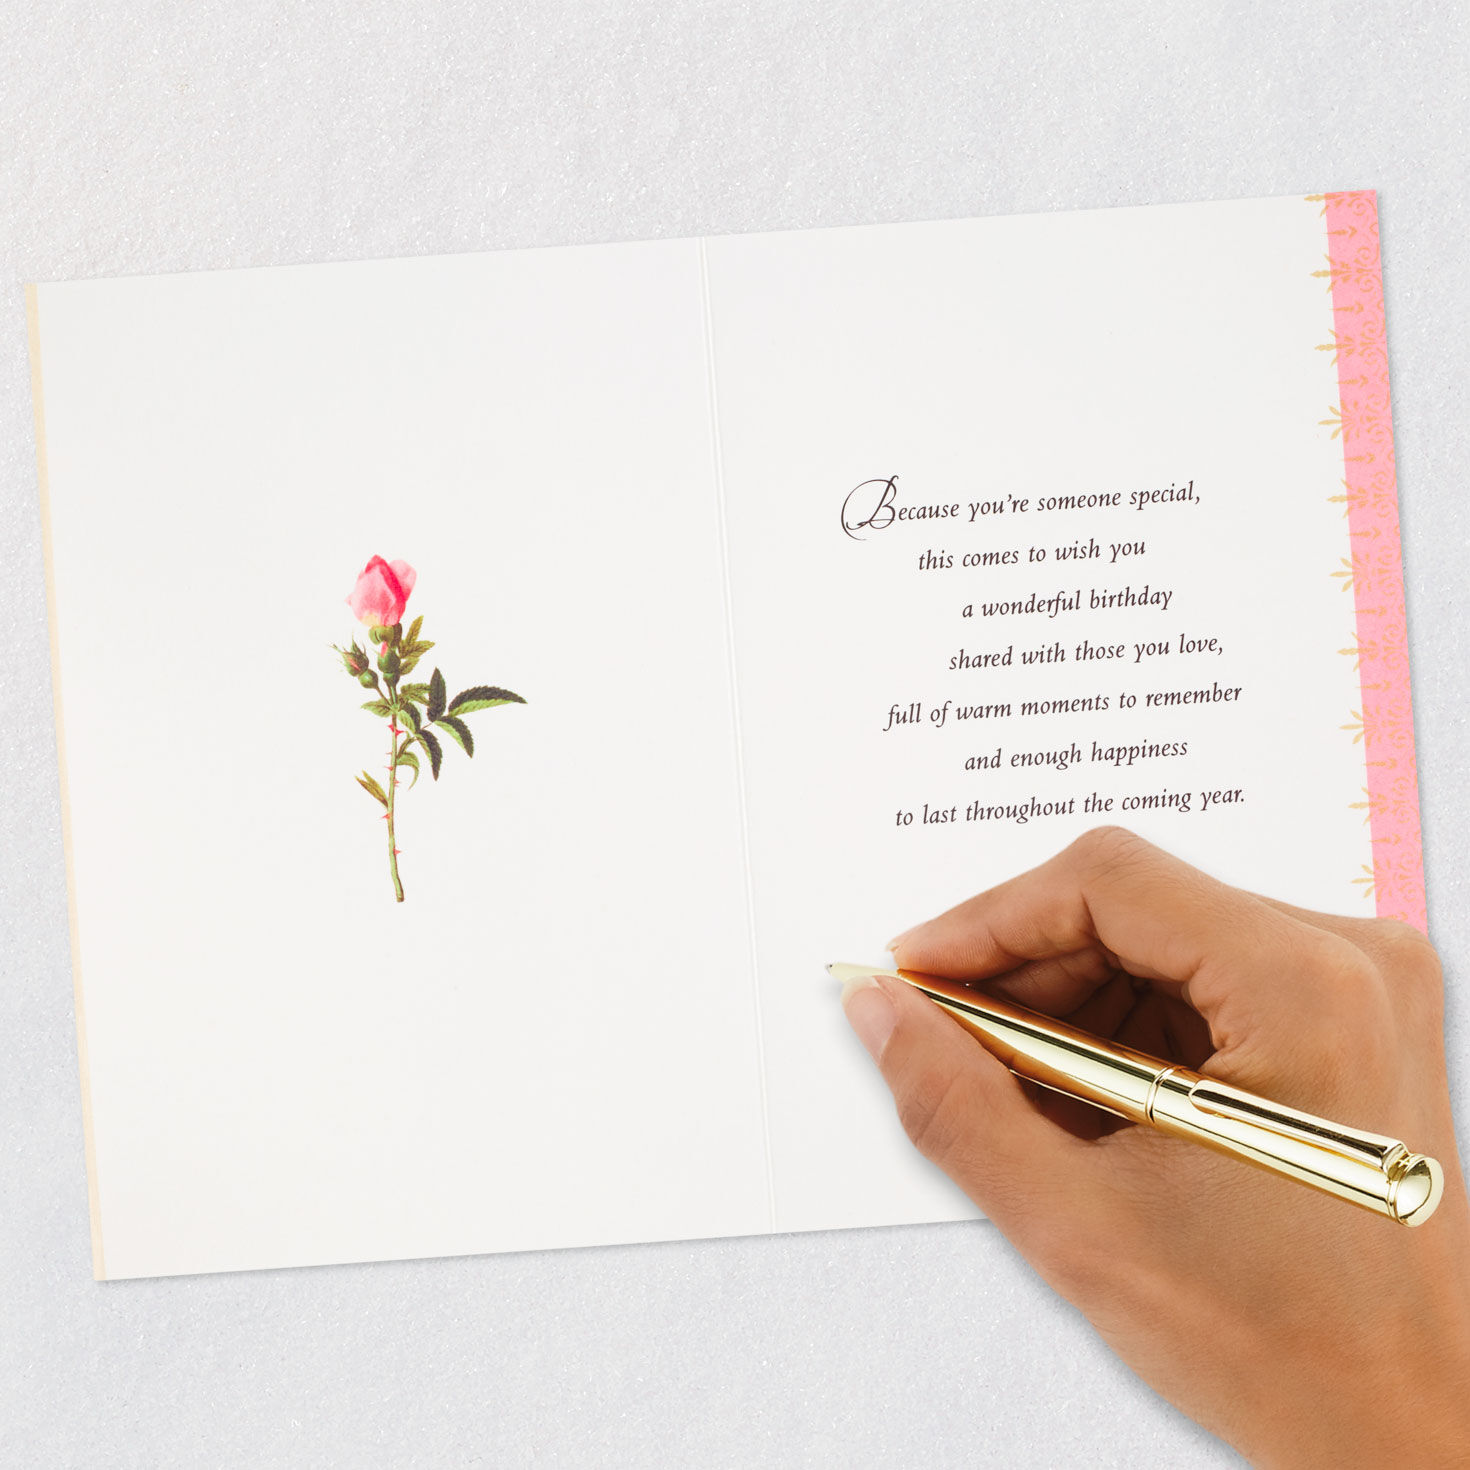 Because you’re someone special,
this comes to wish you
a wonderful birthday
shared with those you love,
full of warm moments to remember
and enough happiness
to last throughout the coming year.